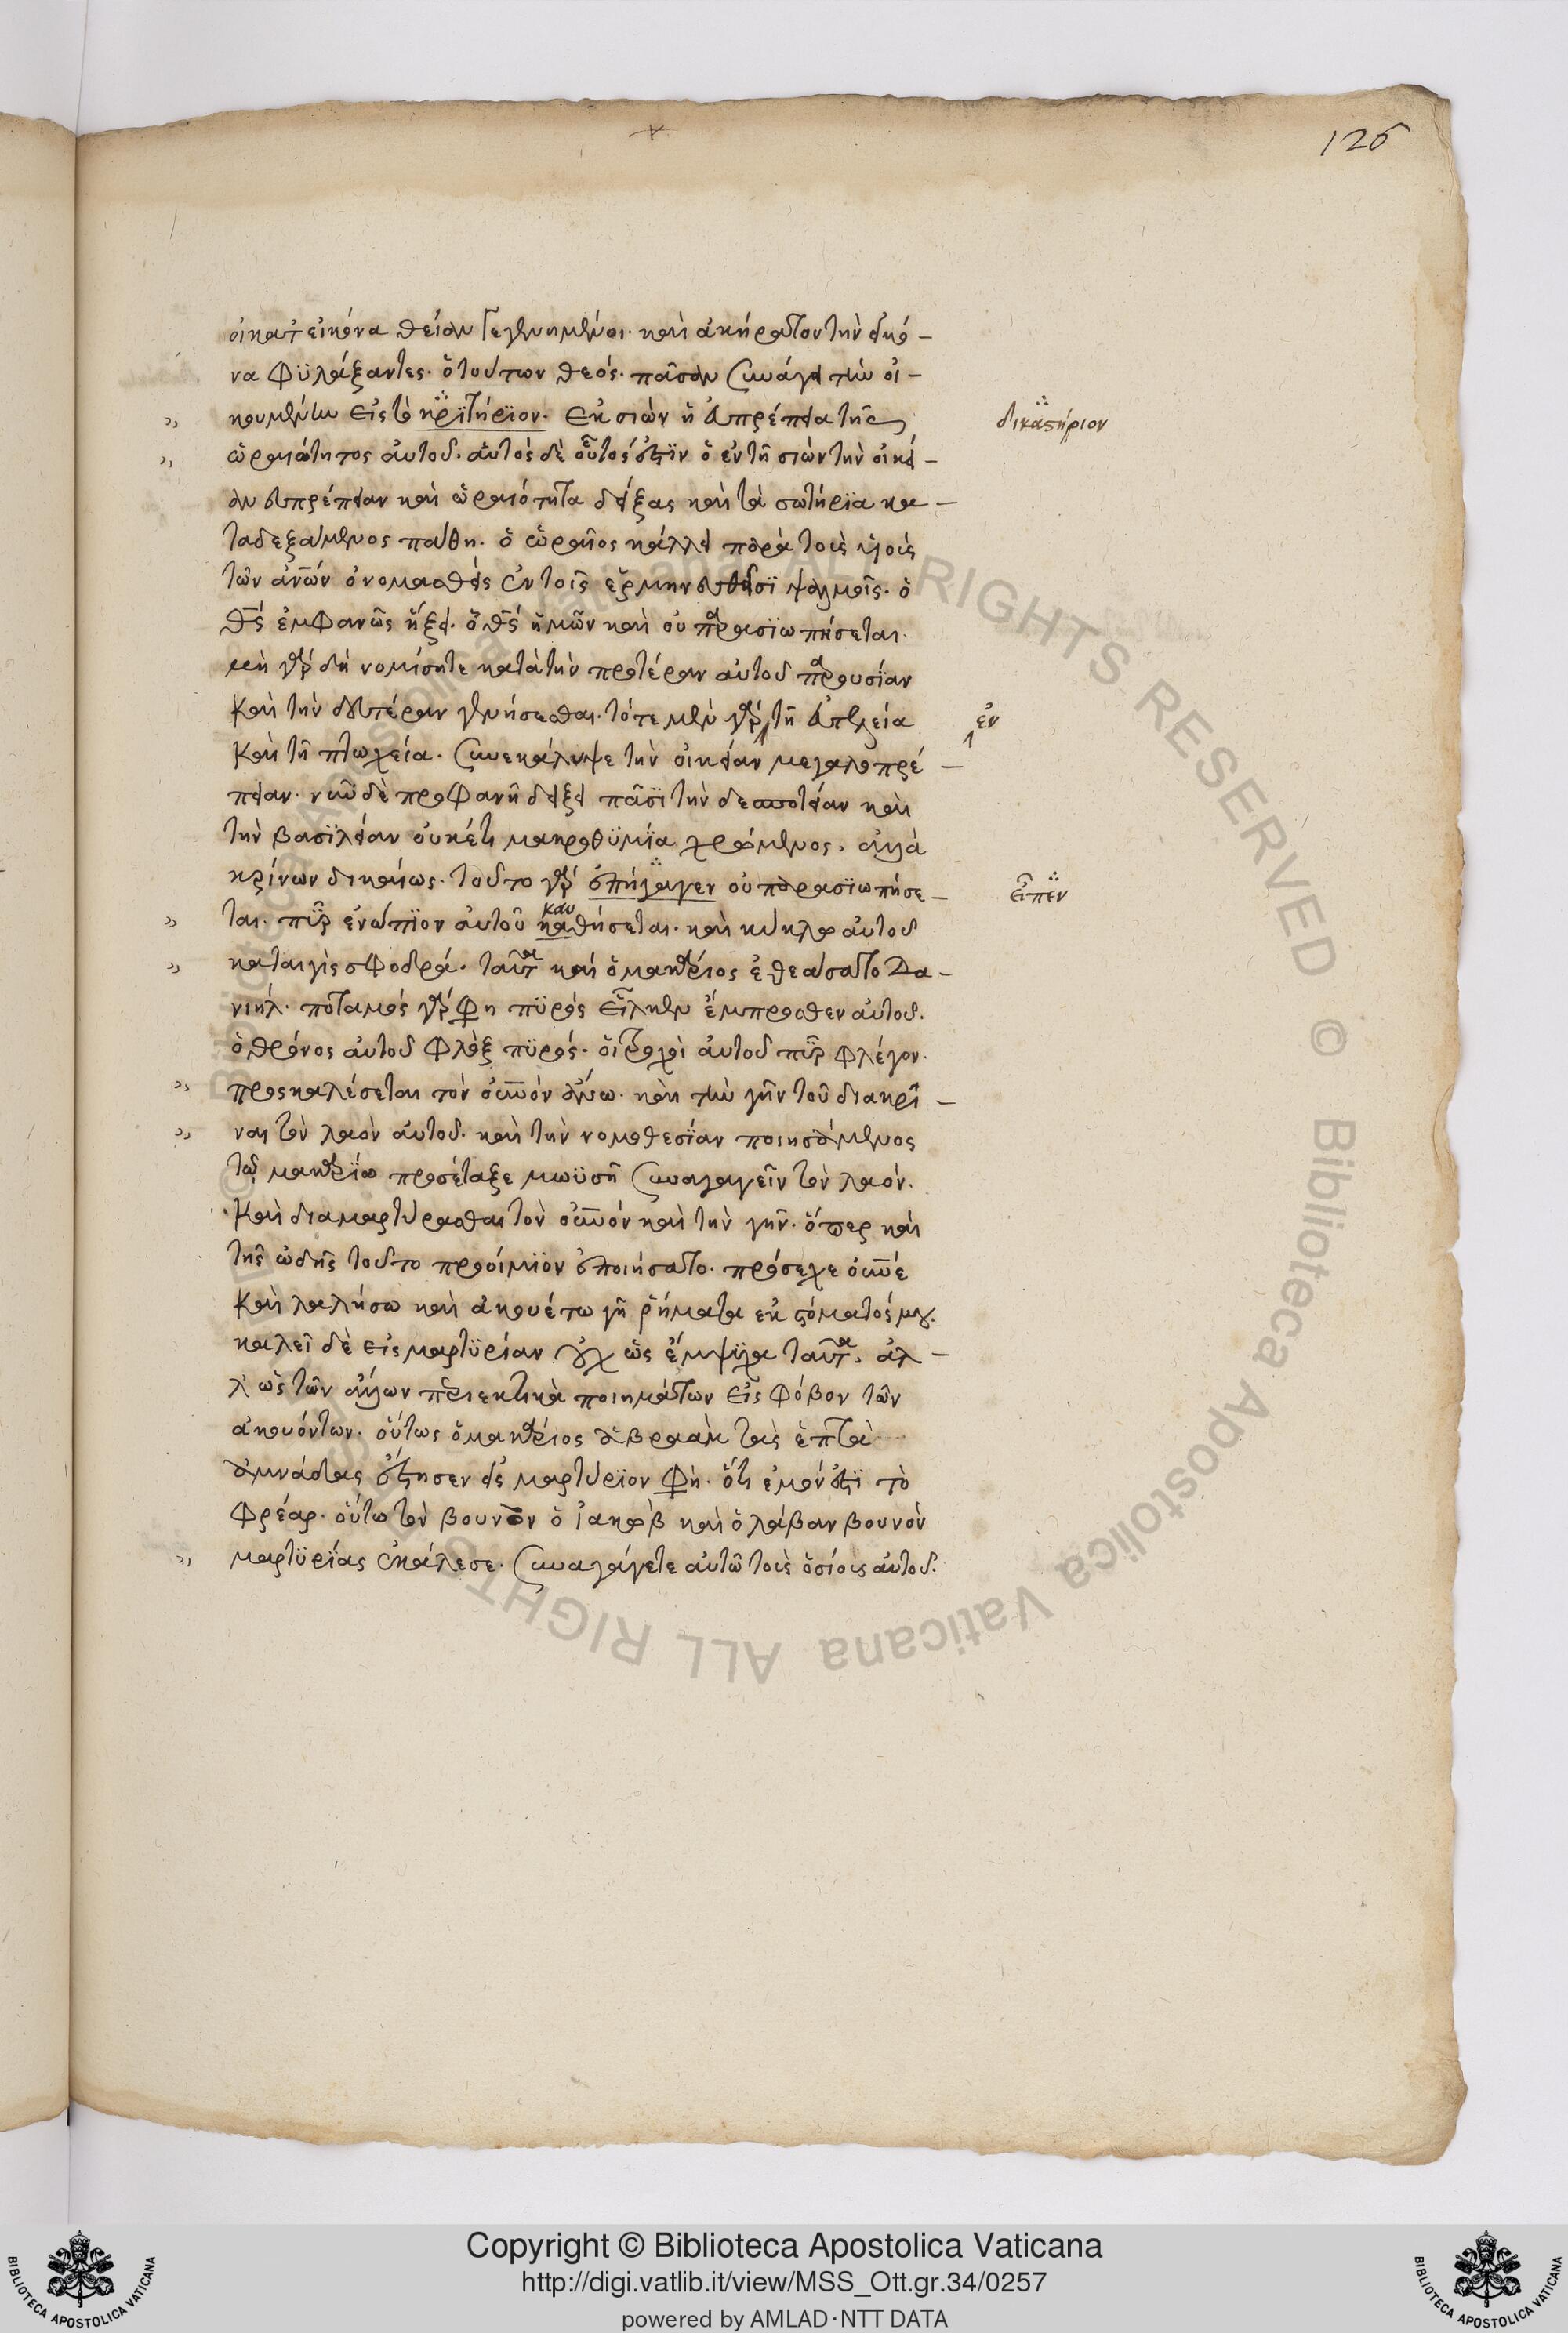 126
οἱ κατ εἰκόνα θείαν γεγενημένοι. καὶ ἀκήρατον τὴν εἰκό-
να φϋλάξαντες. ὁ τούτων θεός. πᾶσαν συνάγει τὴν οἰ-
κουμένην εἰς τὸ κρϊτήρϊον. ἐκ σιὼν ἡ εὐπρέπεια τῆς
δικαστήριον
ὡραιότητος αὐτοῦ. αὐτὸς δὲ οὗτός ἐστϊν ὁ ἐν τῇ σιὼν τὴν οἰκεί-
αν εὐπρέπειαν καὶ ὡραιότητα δείξας καὶ τὰ σωτήρϊα κα-
ταδεξάμενος πάθη. ὁ ὡραῖος κάλλει παρὰ τοὺς υἱοὺς
τῶν ἀνων ὀνομασθεὶς ἐν τοῖς ἑρμηνευθεῖσϊ ψαλμοῖς. ὁ
θς ἐμφανῶς ἥξει. ὁ θς ἡμῶν καὶ οὐ παρασϊωπήσεται.
μὴ γὰρ δὴ νομίσητε κατὰ τὴν προτέραν αὐτοῦ παρουσΐαν
καὶ τὴν δευτέραν γενήσεσθαι. τότε μὲν γὰρ τῇ εὐτελεία
ἐν
καὶ τῇ πτωχεία. συνεκάλυψε τὴν οἰκείαν μεγαλοπρέ-
πειαν. νῦν δὲ προφανῆ δείξει πᾶσϊ τὴν δεσποτείαν καὶ
τὴν βασϊλείαν οὐκέτι μακροθϋμΐα χρώμενος, ἀλλὰ
κρίνων δικαίως. τοῦτο γὰρ ἐπήγαγεν οὐ παρασϊωπήσε-
εἶπεν
ται. πῦρ ἐνώπϊον αὐτοῦ καθήσεται. καὶ κύκλω αὐτοῦ
καυ
καταιγὶς σφοδρά. ταῦτα καὶ ὁ μακάριος ἐθεάσατο Δα-
νιήλ. ποταμὸς γάρ φη πϋρὸς εἷλκεν ἔμπροσθεν αὐτοῦ.
ὁ θρόνος αὐτοῦ φλὸξ πϋρός. οἱ τροχοὶ αὐτοῦ πῦρ φλέγον.
προσκαλέσεται τὸν οὐνὸν ἄνω. καὶ τὴν γῆν τοῦ διακρῖ-
ναι τὸν λαὸν αὐτοῦ. καὶ τὴν νομοθεσΐαν ποιησάμενος
τῷ μακαρΐω προσέταξε μωϋσῇ συναγαγεῖν τὸν λαόν.
καὶ διαμαρτύρασθαι τὸν οὐνὸν καὶ τὴν γῆν. ὅπερ καὶ
τῆς ὠδῆς τοῦτο προοίμϊον ἐποιήσατο. πρόσεχε οὐνέ
καὶ λαλήσω καὶ ἀκουέτω γῆ ῥήματα ἐκ στόματός μου.
καλεῖ δὲ εἰς μαρτϋρίαν οὐχ ὡς ἔμψϋχα ταῦτα, ἀλ-
λ ὡς τῶν ἄλλων περιεκτικὰ ποιημάτων εἰς φόβον τῶν
ἀκουόντων. οὕτως ὁ μακάριος ἀβραὰμ τὰς ἑπτὰ
ἀμνάδας ἔστησεν εἰς μαρτύρϊον φη. ὅτι ἐμόν ἐστϊ τὸ
φρέαρ. οὕτω τὸν βουνὸν ὁ ἰακὼβ καὶ ὁ λάβαν βουνὸν
μαρτϋρίας ἐκάλεσε. συναγάγετε αὐτῷ τοὺς ὁσίους αὐτοῦ.
Copyright © Biblioteca Apostolica Vaticana
http://digi.vatlib.it/view/MSS_Ott.gr.34/0257
powered by AMLAD·NTT DATA